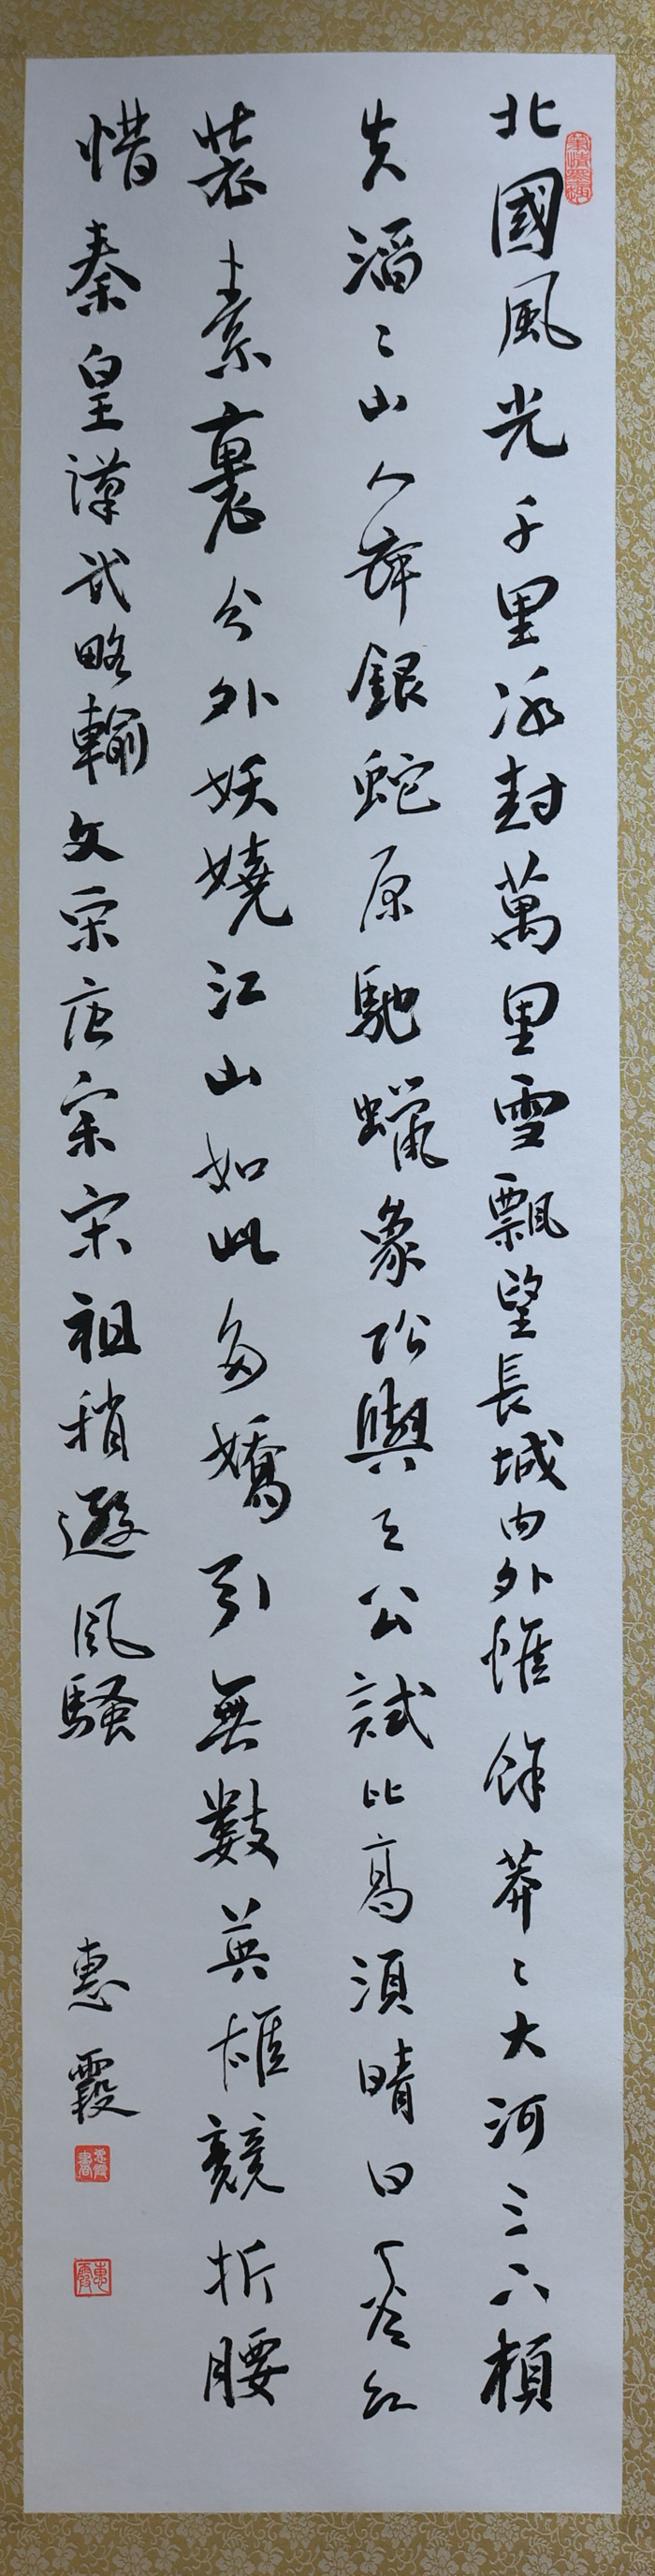 北國風光千里冰封萬里雪飄望長城内外惟餘莽〻大河上下頓
失滔〻山舞銀蛇原馳蠟象欲與天公試比高須晴日看紅
裝素裹分外妖嬈江山如此多嬌引無數英雄競折腰
惜秦皇漢武略輸文采唐宗宋祖稍遜風騷
惠霞
惠霞